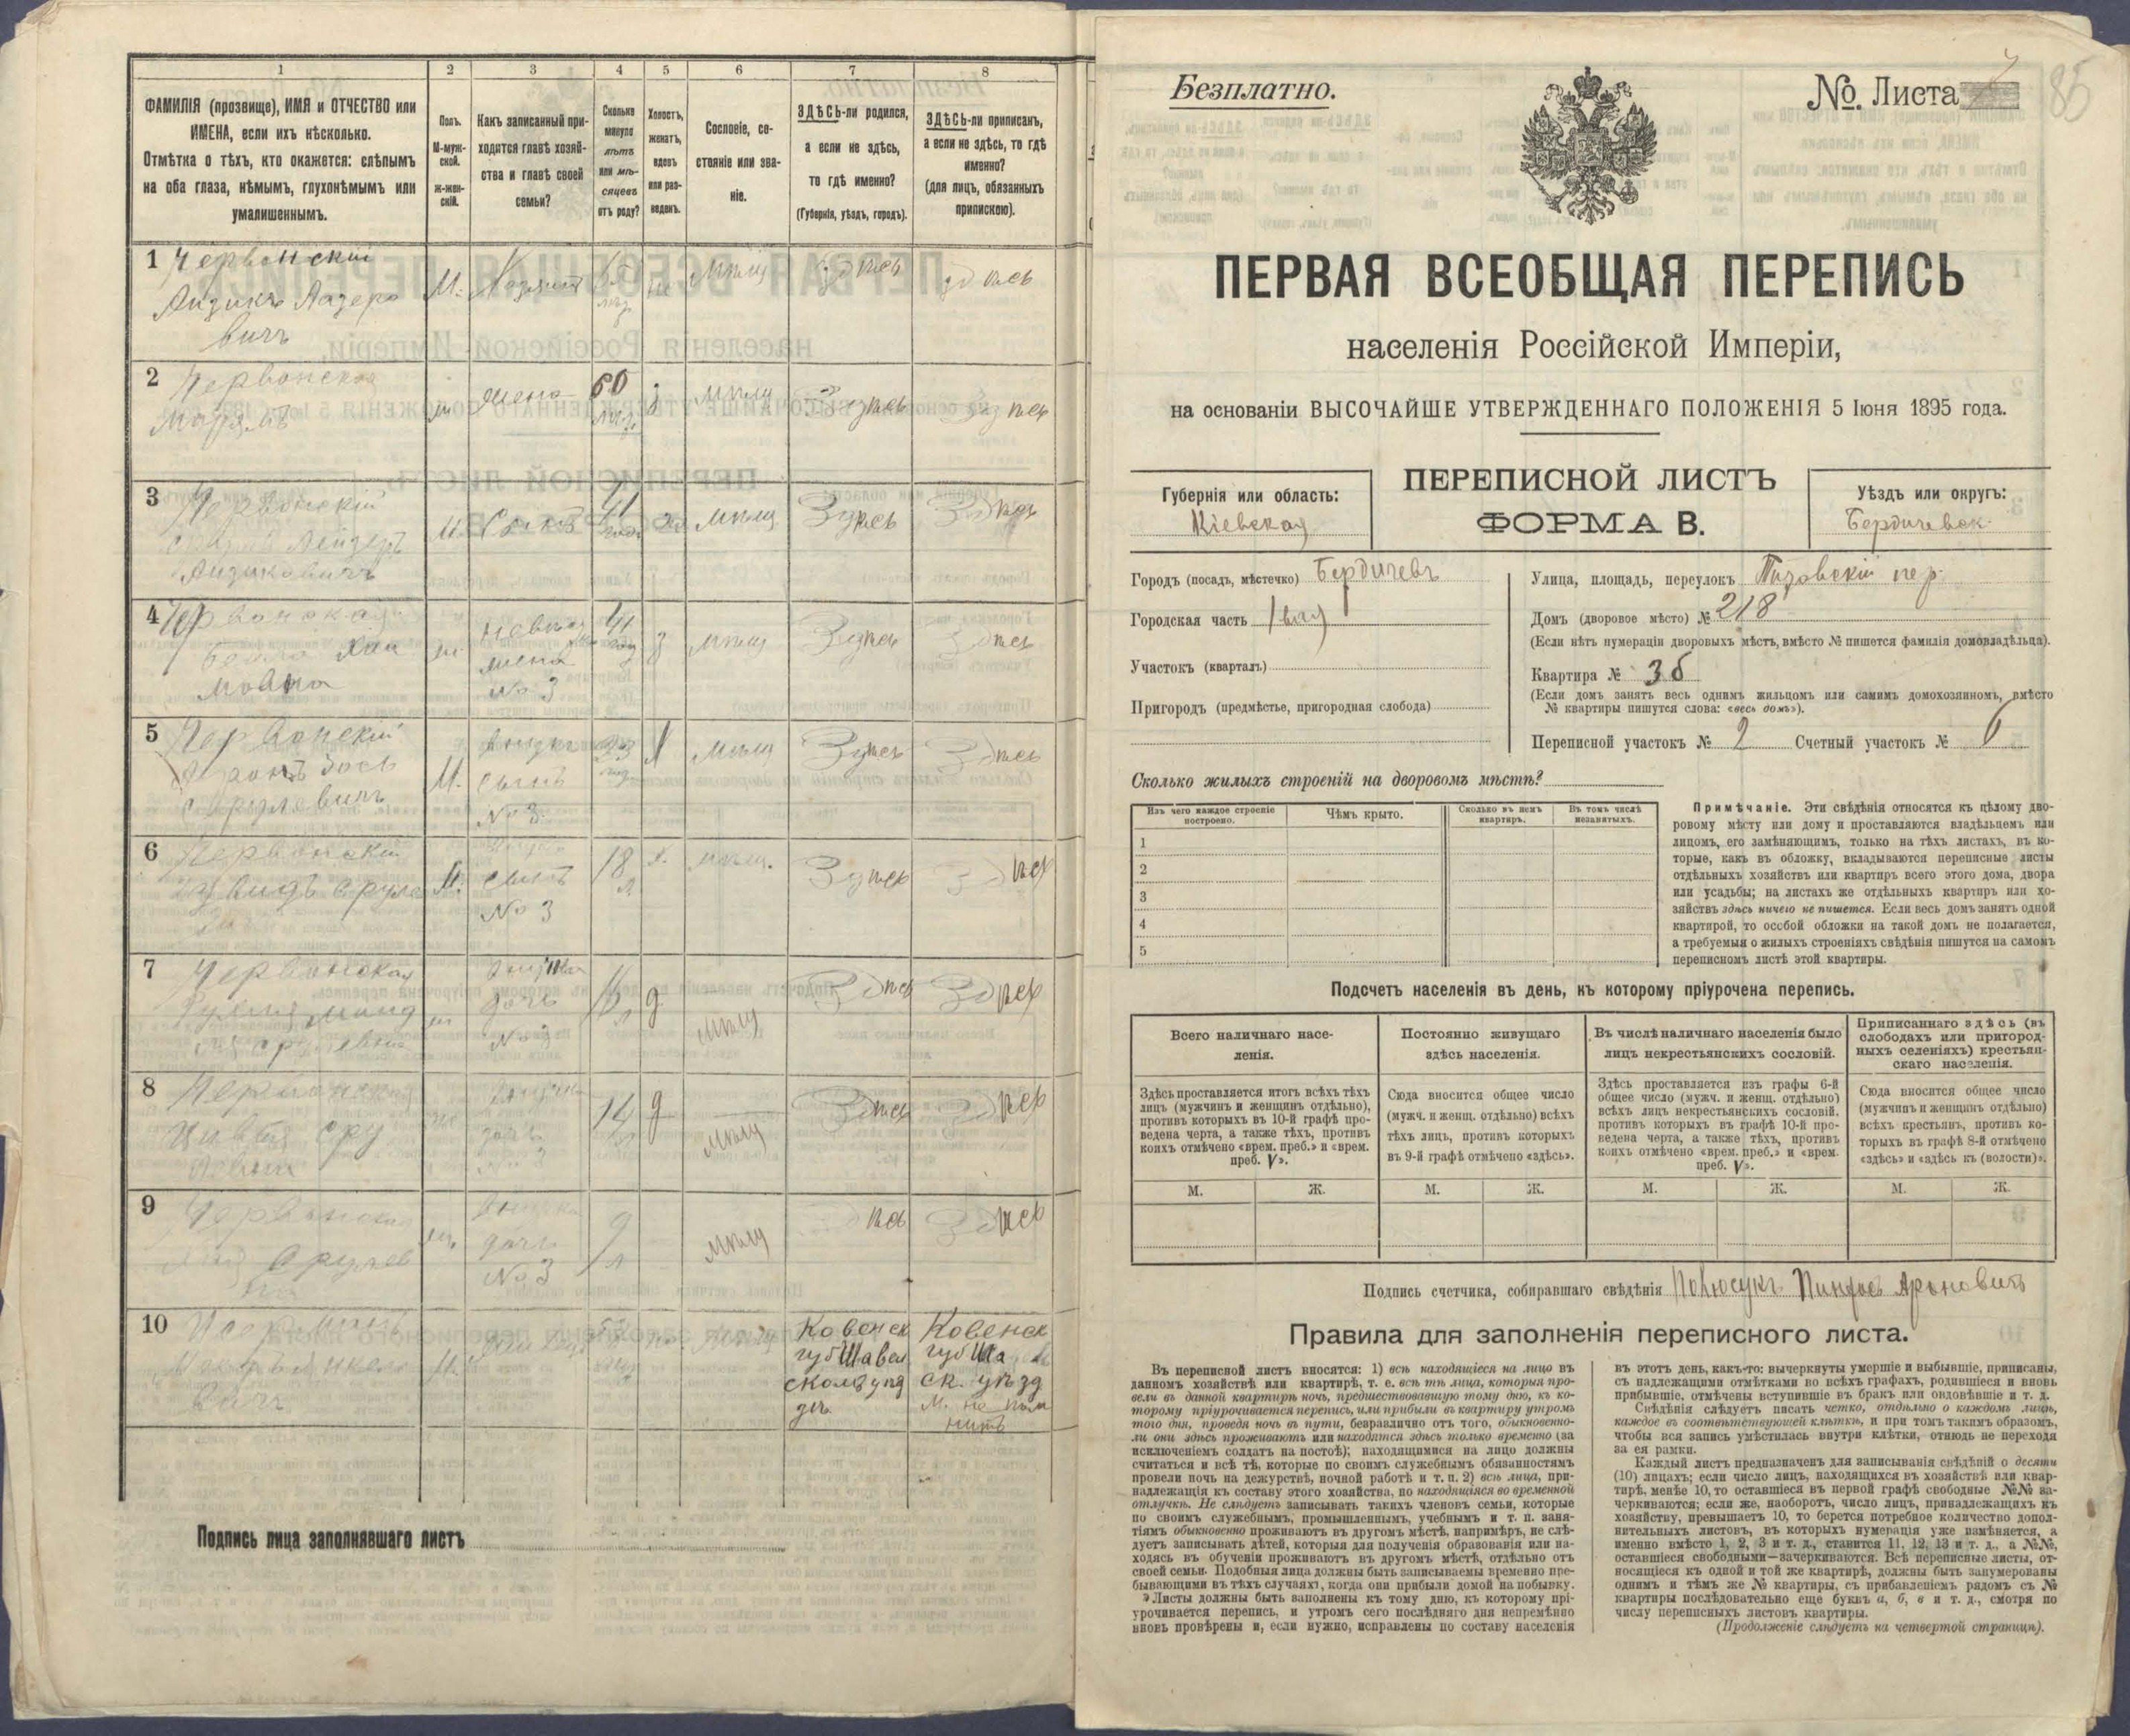 1 2 3 4 5 6 7 8
ФАМИЛІЯ (прозвище), ИМЯ и ОТЧЕСТВО или
ИМЕНА, если ихъ нѣсколько.
Отмѣтка о тѣхъ, кто окажется: слѣпымъ
на оба глаза, нѣмымъ, глухонѣмымъ или
умалишеннымъ.
Полъ.
М-муж-
ской.
ж-жен-
скій.
Какъ записанный при-
ходится главѣ хозяй-
ства и главѣ своей
семьи?
Сколько
минуло
лѣтъ
или мѣ-
сяцевъ
отъ роду?
Холостъ,
женатъ,
вдовъ
или раз-
веденъ.
Сословіе, со-
стояніе или зва-
ніе.
ЗДѢСЬ-ли родился,
а если не здѣсь,
то гдѣ именно?
(Губернія, уѣздъ, городъ).
ЗДѢСЬ-ли приписанъ,
а если не здѣсь, то гдѣ
именно?
(для лицъ, обязанныхъ
припискою).
1 Червонскій
Айзикъ Лазеро
вичъ
М. мѣщ здѣсь здѣсь
2 Червонская
жена 60 мѣщ Здѣсь Здѣсь
3 Червонскій
Айзиковичъ
М. Сынъ 41 мѣщ Здѣсь Здѣсь
4 Червонская
жена
№ 3
41 мѣщ Здѣсь Здѣсь
5 Червонскій
Срулевичъ
М. внукъ
сынъ
№ 3
мѣщ Здѣсь Здѣсь
6 Червонскій
М. сынъ
№ 3
18
л.
мѣщ. Здѣсь Здѣсь
7 Червонская
дочь
№ 3
д мѣщ Здѣсь Здѣсь
8 Червонская
дочь
№ 3
14 д мѣщ Здѣсь Здѣсь
9 Червонская
Срулев
на
дочь
№ 3
9
л
мѣщ Здѣсь Здѣсь
10
вичъ
Ковенск
губ Шавел
скомъ уѣз
дѣ
Ковенск
губ Шав
ск. уѣзд
М. не пом
нитъ
Подпись лица заполнявшаго листъ
Безплатно.
№. Листа
85
ПЕРВАЯ ВСЕОБЩАЯ ПЕРЕПИСЬ
населенія Россійской Имперіи,
на основаніи ВЫСОЧАЙШЕ УТВЕРЖДЕННАГО ПОЛОЖЕНІЯ 5 Іюня 1895 года.
Губернія или область:
Кіевская
ПЕРЕПИСНОЙ ЛИСТЪ
ФОРМА В.
Уѣздъ или округъ:
Бердичевск.
Городъ (посадъ, мѣстечко) Бердичевъ
Городская часть 1вая
Участокъ (кварталъ)
Пригородъ (предмѣстье, пригородная слобода)
Улица, площадь, переулокъ пер.
Домъ (дворовое мѣсто) № 218
(Если нѣтъ нумераціи дворовыхъ мѣстъ, вмѣсто № пишется фамилія домовладѣльца).
Квартира № 3б
(Если домъ занятъ весь однимъ жильцомъ или самимъ домохозяиномъ, вмѣсто
№ квартиры пишутся слова: «весь домъ»).
Переписной участокъ № 2 Счетный участокъ № 6
Сколько жилыхъ строеній на дворовомъ мѣстѣ?
Изъ чего каждое строеніе
построено.
Чѣмъ крыто.
Сколько въ немъ
квартиръ.
Въ томъ числѣ
незанятыхъ.
1
2
3
4
5
Примѣчаніе. Эти свѣдѣнія относятся къ цѣлому дво-
ровому мѣсту или дому и проставляются владѣльцемъ или
лицомъ, его замѣняющимъ, только на тѣхъ листахъ, въ ко-
торые, какъ въ обложку, вкладываются переписные листы
отдѣльныхъ хозяйствъ или квартиръ всего этого дома, двора
или усадьбы; на листахъ же отдѣльныхъ квартиръ или хо-
зяйствъ здѣсь ничего не пишется. Если весь домъ занятъ одной
квартирой, то особой обложки на такой домъ не полагается,
а требуемыя о жилыхъ строеніяхъ свѣдѣнія пишутся на самомъ
переписномъ листѣ этой квартиры.
Подсчетъ населенія въ день, къ которому пріурочена перепись.
Всего наличнаго насе-
ленія.
Постоянно живущаго
здѣсь населенія.
Въ числѣ наличнаго населенія было
лицъ некрестьянскихъ сословій.
Приписаннаго здѣсь (въ
слободахъ или пригород-
ныхъ селеніяхъ) крестьян-
скаго населенія.
Здѣсь проставляется итогъ всѣхъ тѣхъ
лицъ (мужчинъ и женщинъ отдѣльно),
противъ которыхъ въ 10-й графѣ про-
ведена черта, а также тѣхъ, противъ
коихъ отмѣчено «врем. преб.» и «врем.
преб. V».
Сюда вносится общее число
(мужч. и женщ. отдѣльно) всѣхъ
тѣхъ лицъ, противъ которыхъ
въ 9-й графѣ отмѣчено «здѣсь».
Здѣсь проставляется изъ графы 6-й
общее число (мужч. и женщ. отдѣльно)
всѣхъ лицъ некрестьянскихъ сословій.
противъ которыхъ въ графѣ 10-й про-
ведена черта, а также тѣхъ, противъ
коихъ отмѣчено «врем. преб.» и «врем.
преб. V».
Сюда вносится общее число
(мужчинъ и женщинъ отдѣльно)
всѣхъ крестьянъ, противъ ко-
торыхъ въ графѣ 8-й отмѣчено
«здѣсь» и «здѣсь къ (волости)».
М. Ж. М. Ж. М. Ж. М. Ж.
Подпись счетчика, собиравшаго свѣдѣнія Пинхосъ Ароновичъ
Правила для заполненія переписного листа.
Въ переписной листъ вносятся: 1) всѣ находящіеся на лицо въ
данномъ хозяйствѣ или квартирѣ, т. е. всѣ тѣ лица, которыя про-
вели въ данной квартирѣ ночь, предшествовавшую тому дню, къ ко-
торому пріурочивается перепись, или прибыли въ квартиру утромъ
того дня, проведя ночь въ пути, безразлично отъ того, обыкновенно-
ли они здѣсь проживаютъ или находятся здѣсь только временно (за
исключеніемъ солдатъ на постоѣ); находящимися на лицо должны
считаться и всѣ тѣ, которые по своимъ служебнымъ обязанностямъ
провели ночь на дежурствѣ, ночной работѣ и т. п. 2) всѣ лица, при-
надлежащія къ составу этого хозяйства, но находящіяся во временной
отлучкѣ. Не слѣдуетъ записывать такихъ членовъ семьи, которые
по своимъ служебнымъ, промышленнымъ, учебнымъ и т. п. заня-
тіямъ обыкновенно проживаютъ въ другомъ мѣстѣ, напримѣръ, не слѣ-
дуетъ записывать дѣтей, которыя для полученія образованія или на-
ходясь въ обученіи проживаютъ въ другомъ мѣстѣ, отдѣльно отъ
своей семьи. Подобныя лица должны быть записываемы временно пре-
бывающими въ тѣхъ случаяхъ, когда они прибыли домой на побывку.
Листы должны быть заполнены къ тому дню, къ которому прі-
урочивается перепись, и утромъ сего послѣдняго дня непремѣнно
вновь провѣрены и, если нужно, исправлены по составу населенія
въ этотъ день, какъ-то: вычеркнуты умершіе и выбывшіе, приписаны,
съ надлежащими отмѣтками во всѣхъ графахъ, родившіеся и вновь
прибывшіе, отмѣчены вступившіе въ бракъ или овдовѣвшіе и т. д.
Свѣдѣнія слѣдуетъ писать четко, отдѣльно о каждомъ лицѣ,
каждое въ соотвѣтствующей клѣткѣ, и при томъ такимъ образомъ,
чтобы вся запись умѣстилась внутри клѣтки, отнюдь не переходя
за ея рамки.
Каждый листъ предназначенъ для записыванія свѣдѣній о десяти
(10) лицахъ; если число лицъ, находящихся въ хозяйствѣ или квар-
тирѣ, менѣе 10, то оставшіеся въ первой графѣ свободные №№ за-
черкиваются; если же, наоборотъ, число лицъ, принадлежащихъ къ
хозяйству, превышаетъ 10, то берется потребное количество допол-
нительныхъ листовъ, въ которыхъ нумерація уже измѣняется, а
именно вмѣсто 1, 2, 3 и т. д., ставится 11, 12, 13 и т. д., а №№,
оставшіеся свободными—зачеркиваются. Всѣ переписные листы, от-
носящіеся къ одной и той же квартирѣ, должны быть занумерованы
однимъ и тѣмъ же № квартиры, съ прибавленіемъ рядомъ съ №
квартиры послѣдовательно еще буквъ а, б, в и т. д., смотря по
числу переписныхъ листовъ квартиры.
(Продолженіе слѣдуетъ на четвертой страницѣ).